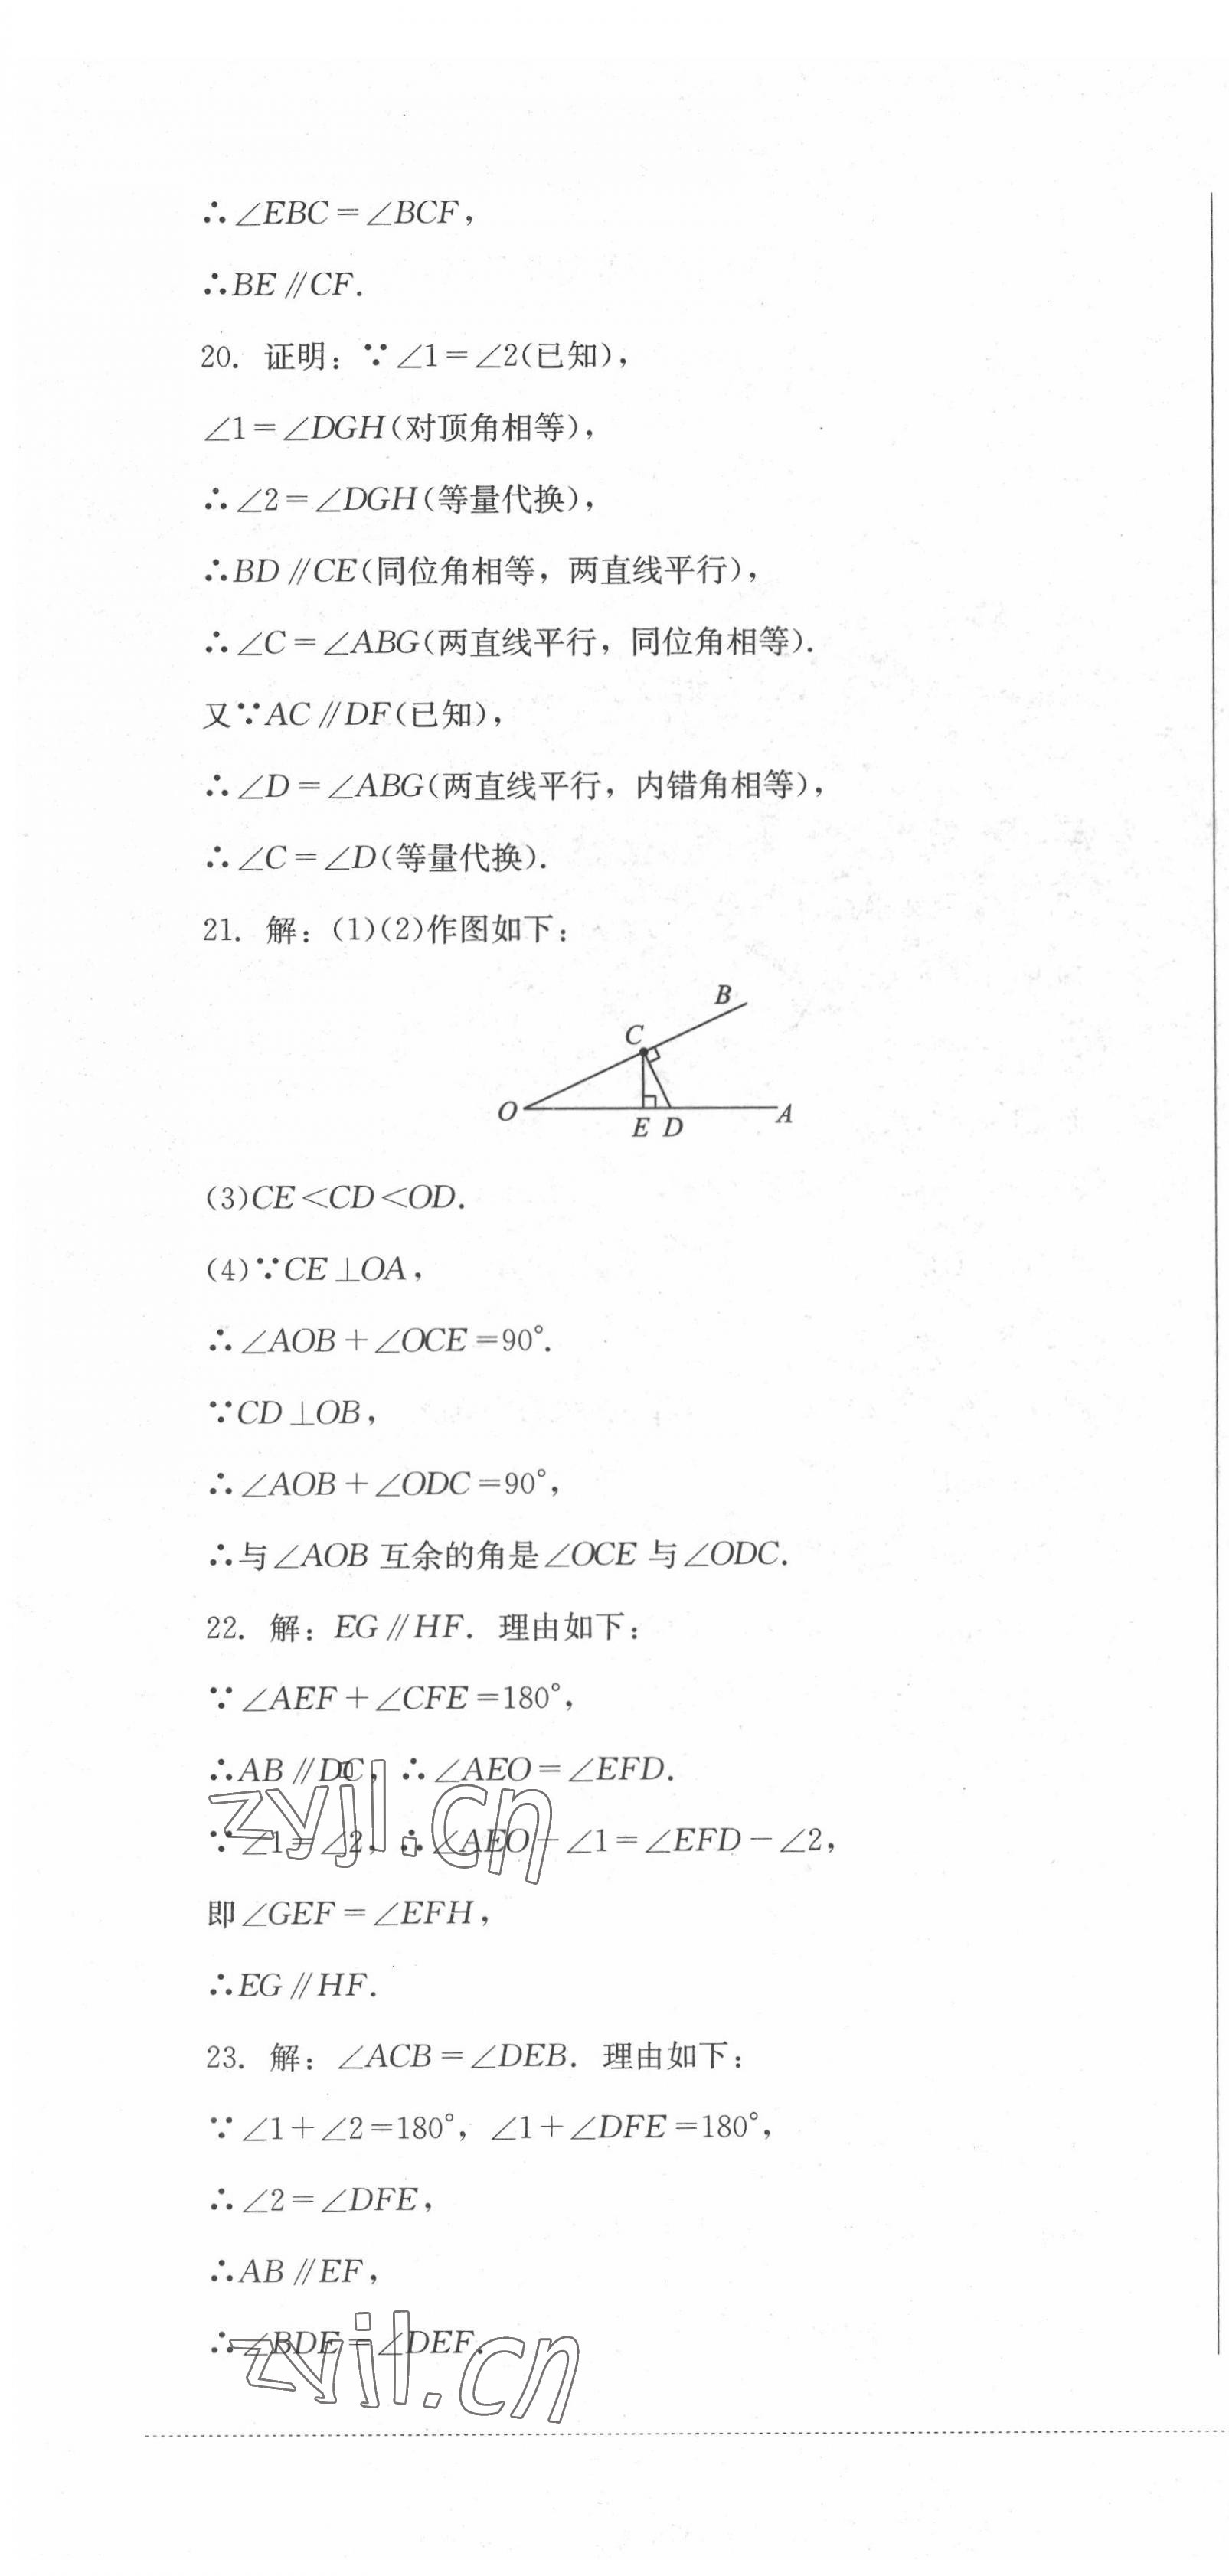 ∴∠EBC=∠BCF,
∴BE∥CF.
20. 证明：∵∠1=∠2(已知)，
∠1=∠DGH(对顶角相等)，
∴∠2=∠DGH(等量代换)，
∴BD∥CE(同位角相等，两直线平行)，
∴∠C=∠ABG(两直线平行，同位角相等).
又∵AC∥DF(已知)，
∴∠D=∠ABG(两直线平行，内错角相等)，
∴∠C=∠D(等量代换).
21. 解：(1)(2)作图如下：
B
C
O
E D
A
(3)CE<CD<OD.
(4)∵CE⊥OA,
∴∠AOB+∠OCE=90°.
∵CD⊥OB,
∴∠AOB+∠ODC=90°,
∴与∠AOB 互余的角是∠OCE 与∠ODC.
22. 解：EG∥HF. 理由如下：
∵∠AEF+∠CFE=180°,
∴AB∥DC, ∴∠AEO=∠EFD.
∵∠1=∠2, ∴∠AEO-∠1=∠EFD-∠2,
zyjl.cn
即∠GEF=∠EFH,
∴EG∥HF.
23. 解：∠ACB=∠DEB. 理由如下：
∵∠1+∠2=180°, ∠1+∠DFE=180°,
∴∠2=∠DFE,
∴AB∥EF,
∴∠BDE=∠DEF.
zyjl.cn